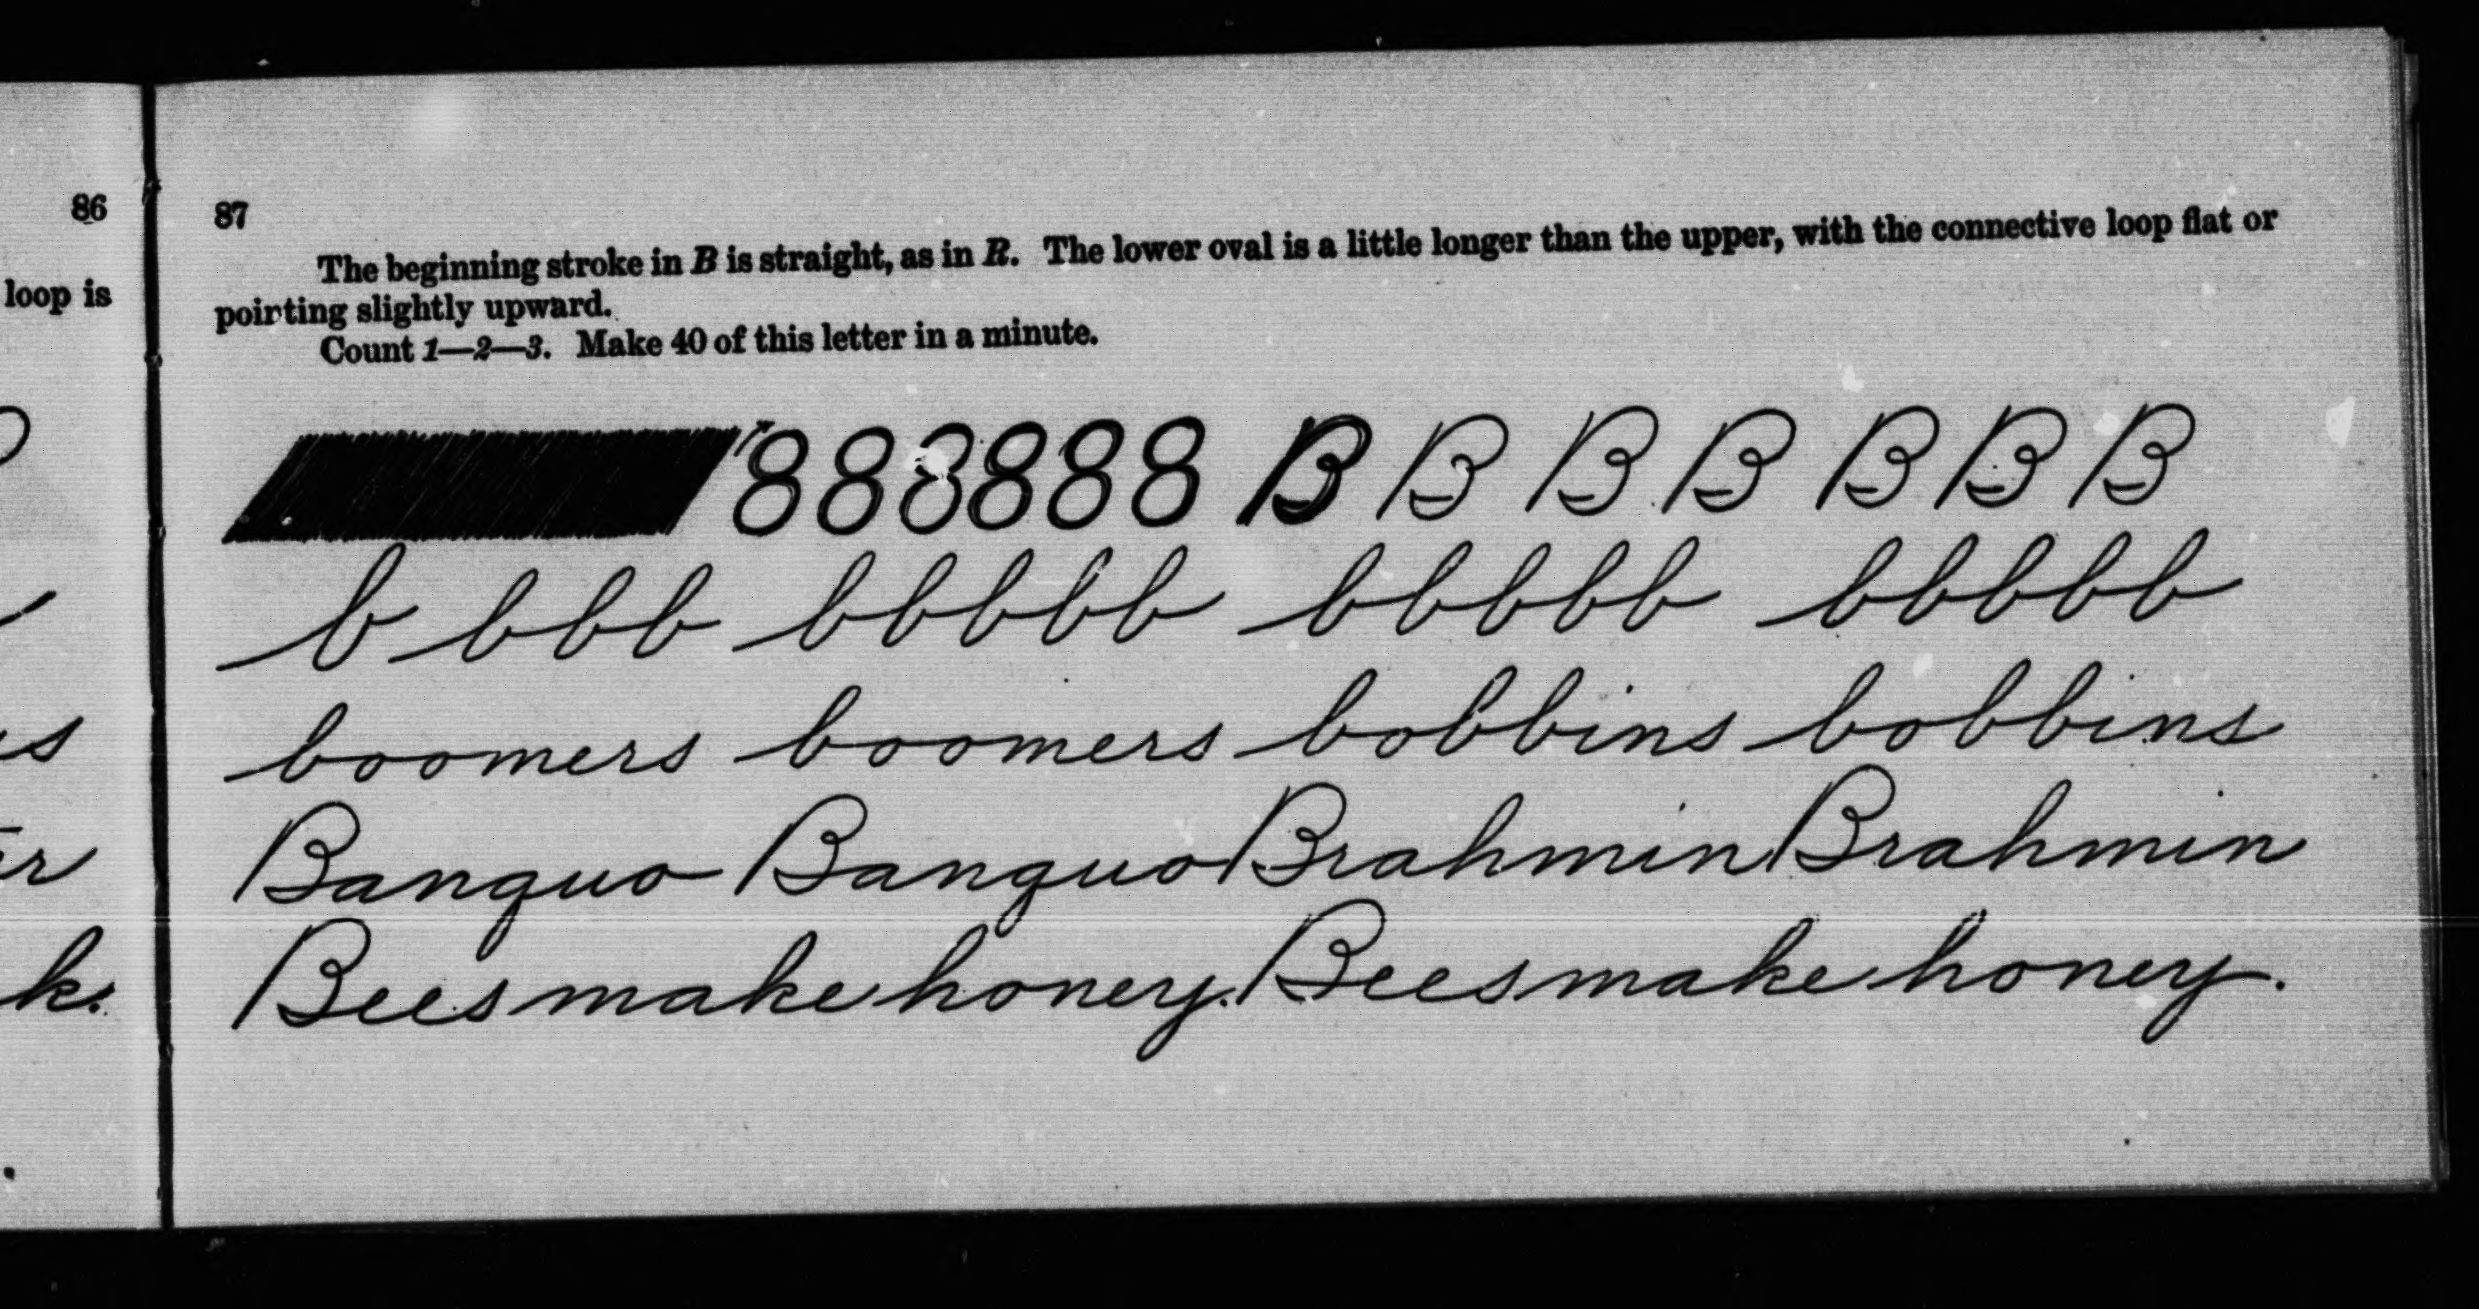 86
loop is
s
r
k.
87
The beginning stroke in B is straight, as in R. The lower oval is a little longer than the upper, with the connective loop flat or
pointing slightly upward.
Count 1—2—3. Make 40 of this letter in a minute.
888888 B B B B B B B
b b b b bbbbb bbbbb bbbbb
boomers boomers bobbins bobbins
Banquo Banquo Brahmin Brahmin
Bees make honey. Bees make honey.